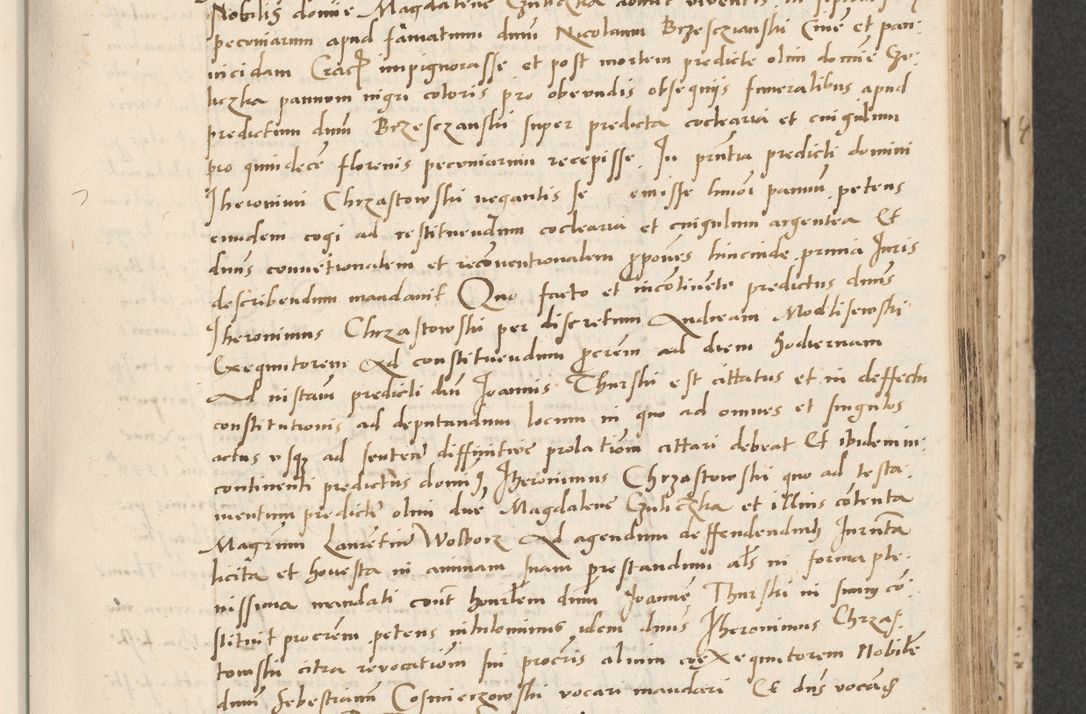 Nobilis domine Magdalene Czuliczka
peconiarum apud famatum dnum Nicolaum Brzesczianski Ciuem et pan-
nicidam Crac impignorasse et post mortem predicte olim domine Czu-
liczka pannum nigri coloris pro obeundis obsequijs funeralibus apud
predictum dnum Brzesczanski super predicta coclearia et cingulum
pro quindecē florenis peconiarum recepisse. In pñtia predicti domini
Iheronimi Chrzastowski negantis se emisse hmōi pannū petens
eundem cogi ad restituendum coclearia et cingulum argentea Et
dnus conuētionalem et recōuentionalem ppōnes hincinde primā Iuris
describendum mandauit Quo facto et incōtinēti predictus dnus
Iheronimus Chrzastowski per discretum Andream Modlisewski
Exequutorem Ad constituendum pcrēm ad diem hodiernam
Ad instam predicti dni Joannis Thurski est cittatus et in deffectu
constitutionis ad deputandum locum in quo ad omnes et singulos
actus vsqz ad sentētie diffinitiue prolationē cittari debeat Et ibidem in-
continenti predictus dominus Iheronimus Chrzastowski quo ad testa-
mentum predicte olim dne Magdalene Czuliczka et illius cōtenta
Magrum Laurētiū Wolborz Ad agendum deffendendum Iurāta
licita et honesta in animam suam prestandum als in forma ple-
nissima mandati cont honrlem dnum Joannē Thurski in suum cō-
stituit procrem petens nihilominus idem dnus Iheronimus Chrzas-
towski citra reuocationē sui procris alium coexequutorem Nobilē
dnum Sebestianum Cosmierzowski vocari mandari Et dns vocandū